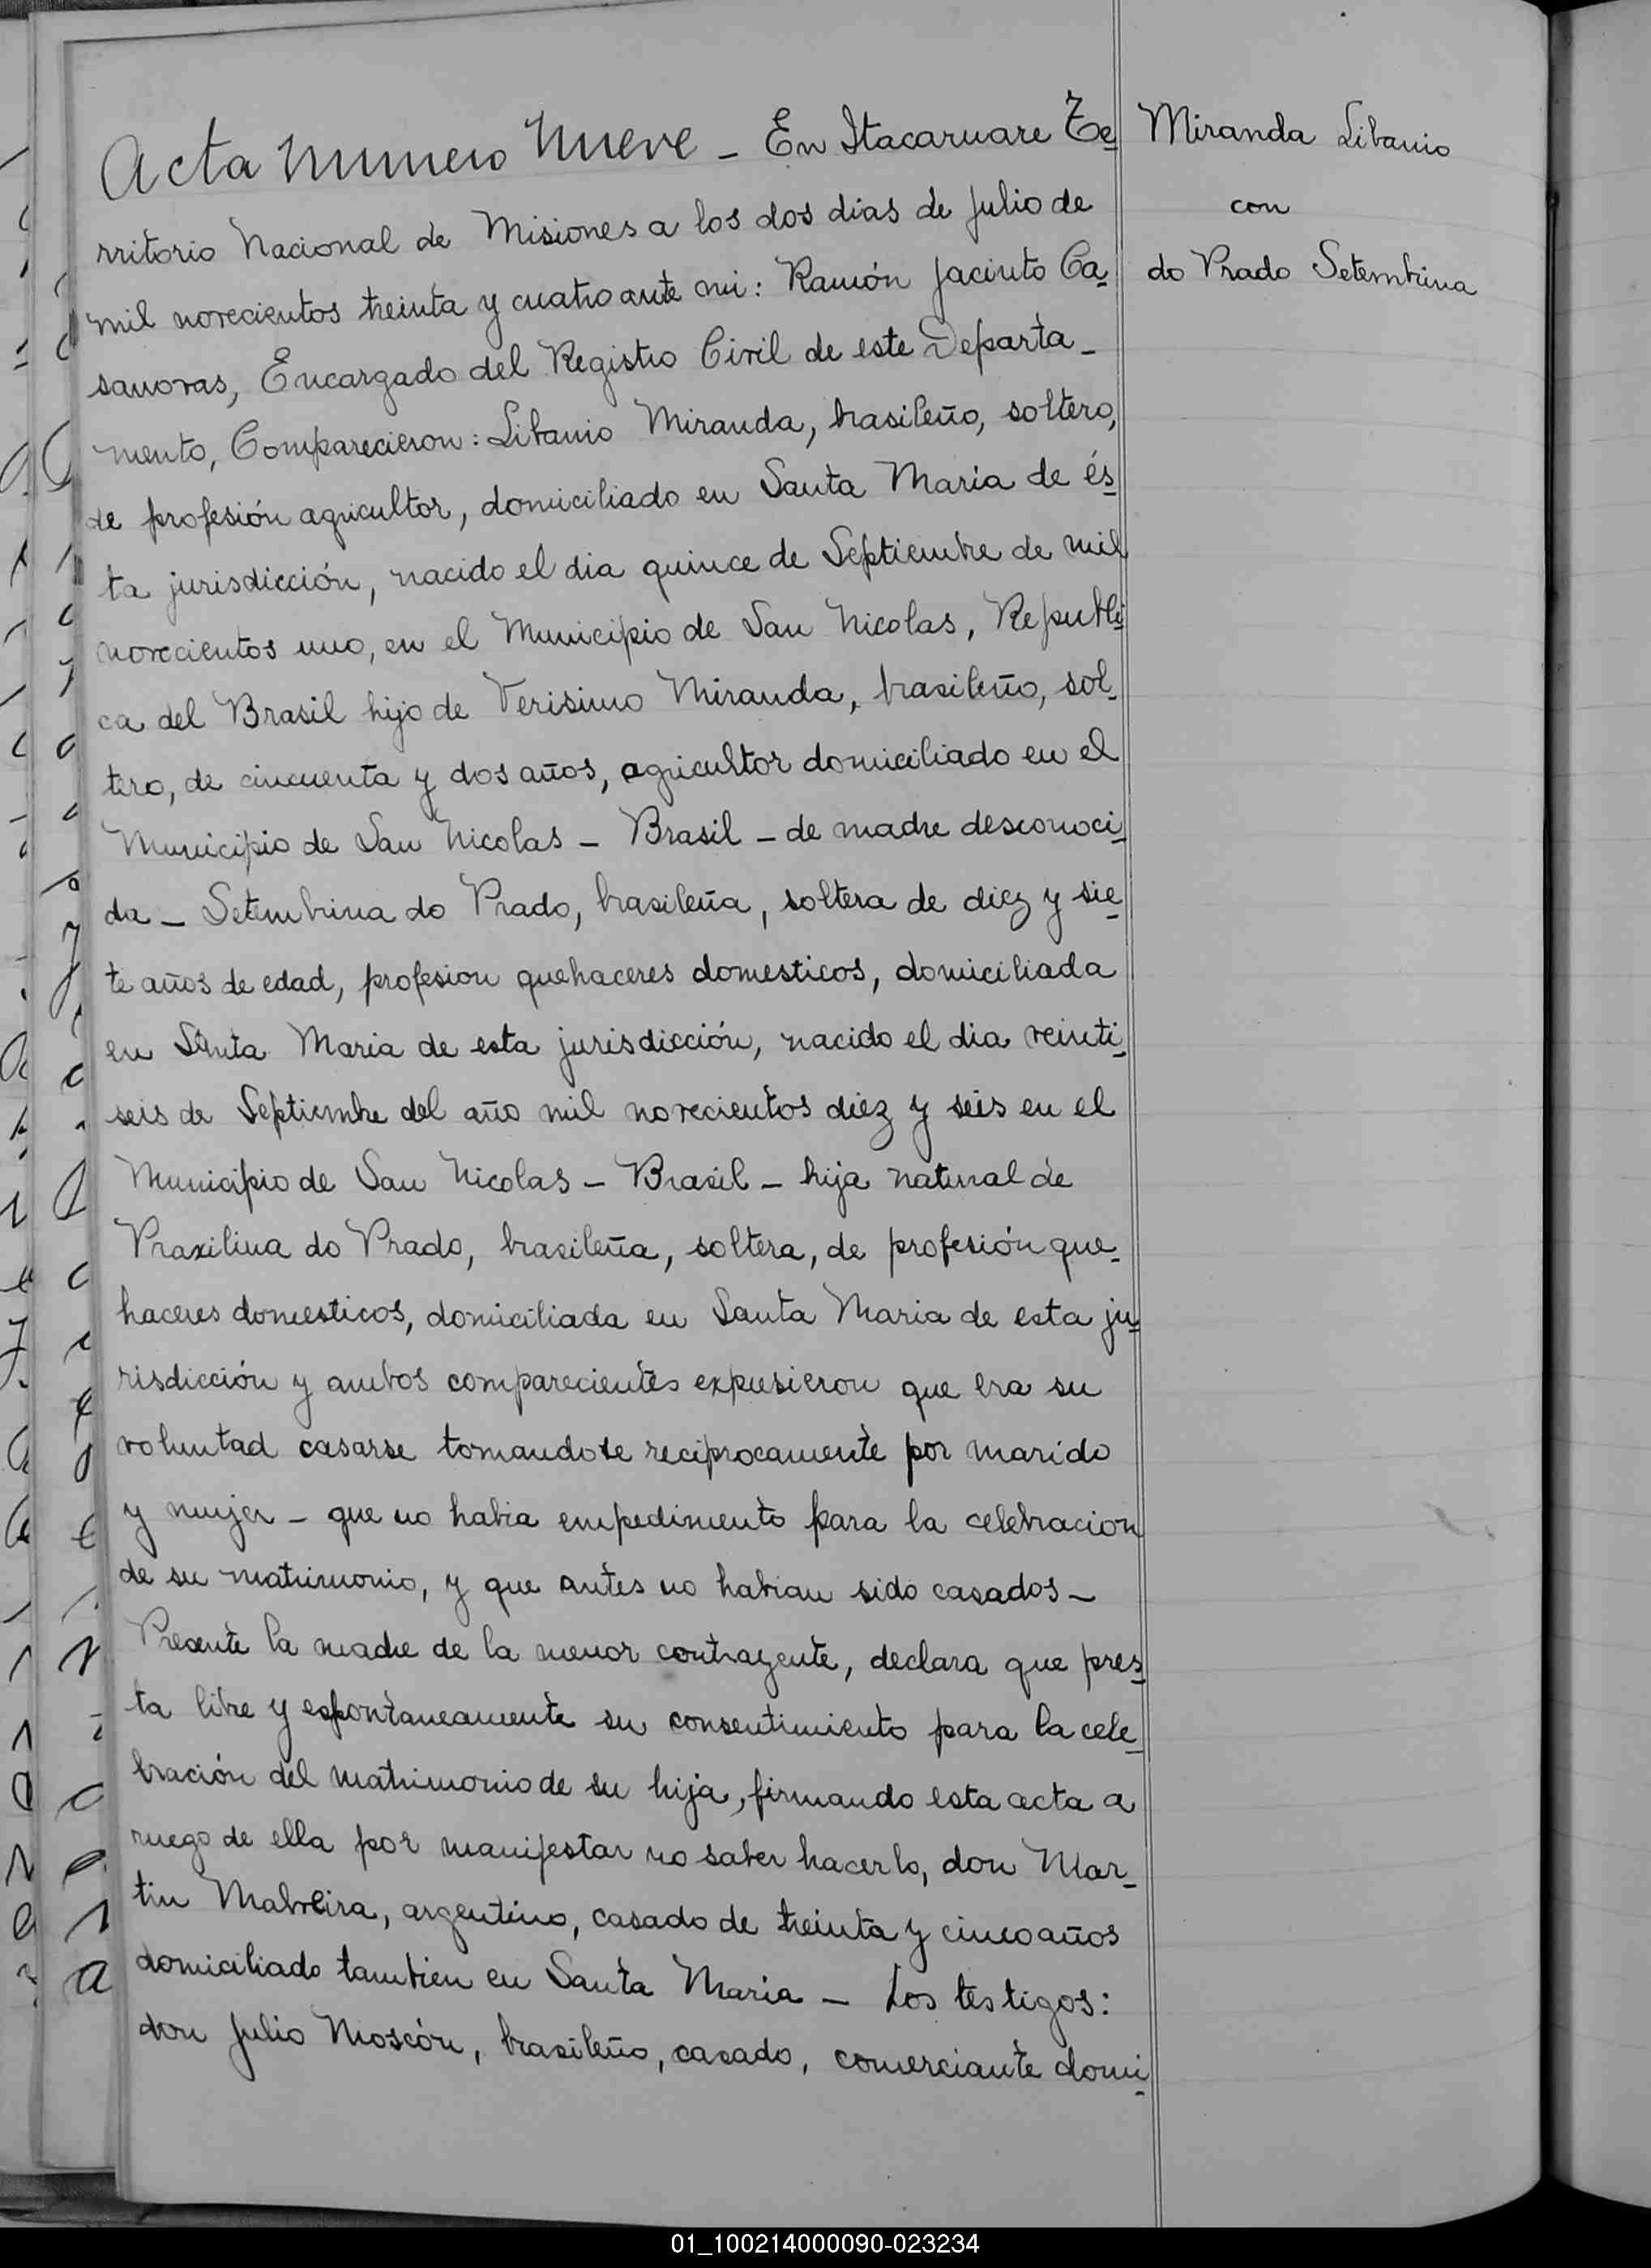 Acta Numero Nueve - En Itacaruare Te
Miranda Libanio
con
do Prado Setembrina
rritorio Nacional de Misiones a los dos dias de Julio de
mil novecientos treinta y cuatro ante mi: Ramón Jacinto Ca-
sanovas, Encargado del Registro Civil de este Departa-
mento, Comparecieron: Libanio Miranda, brasileño, soltero,
de profesión agricultor, domiciliado en Santa Maria de és-
ta jurisdicción, nacido el dia quince de Septiembre de mil
novecientos uno, en el Municipio de San Nicolas, Republi-
ca del Brasil hijo de Verisimo Miranda, brasileño, sol-
tero, de cincuenta y dos años, agricultor domiciliado en el
Municipio de San Nicolas - Brasil - de madre desconoci-
da - Setembrina do Prado, brasileña, soltera de diez y sie-
te años de edad, profesion quehaceres domesticos, domiciliada
en Santa Maria de esta jurisdicción, nacido el dia veinti-
seis de Septiembre del año mil novecientos diez y seis en el
Municipio de San Nicolas - Brasil - hija natural de
Praxilina do Prado, brasileña, soltera, de profesión que-
haceres domesticos, domiciliada en Santa Maria de esta ju-
risdicción y ambos comparecientes expusieron que era su
voluntad casarse tomandose reciprocamente por marido
y mujer - que no habia empedimento para la celebracion
de su matrimonio, y que antes no habian sido casados -
Presente la madre de la menor contrayente, declara que pres-
ta libre y espontaneamente su consentimiento para la cele-
bración del matrimonio de su hija, firmando esta acta a
ruego de ella por manifestar no saber hacerlo, don Mar-
tin Malveira, argentino, casado de treinta y cinco años
domiciliado tambien en Santa Maria - Los testigos:
don Julio Moscón, brasileño, casado, comerciante domi-
01_100214000090-023234